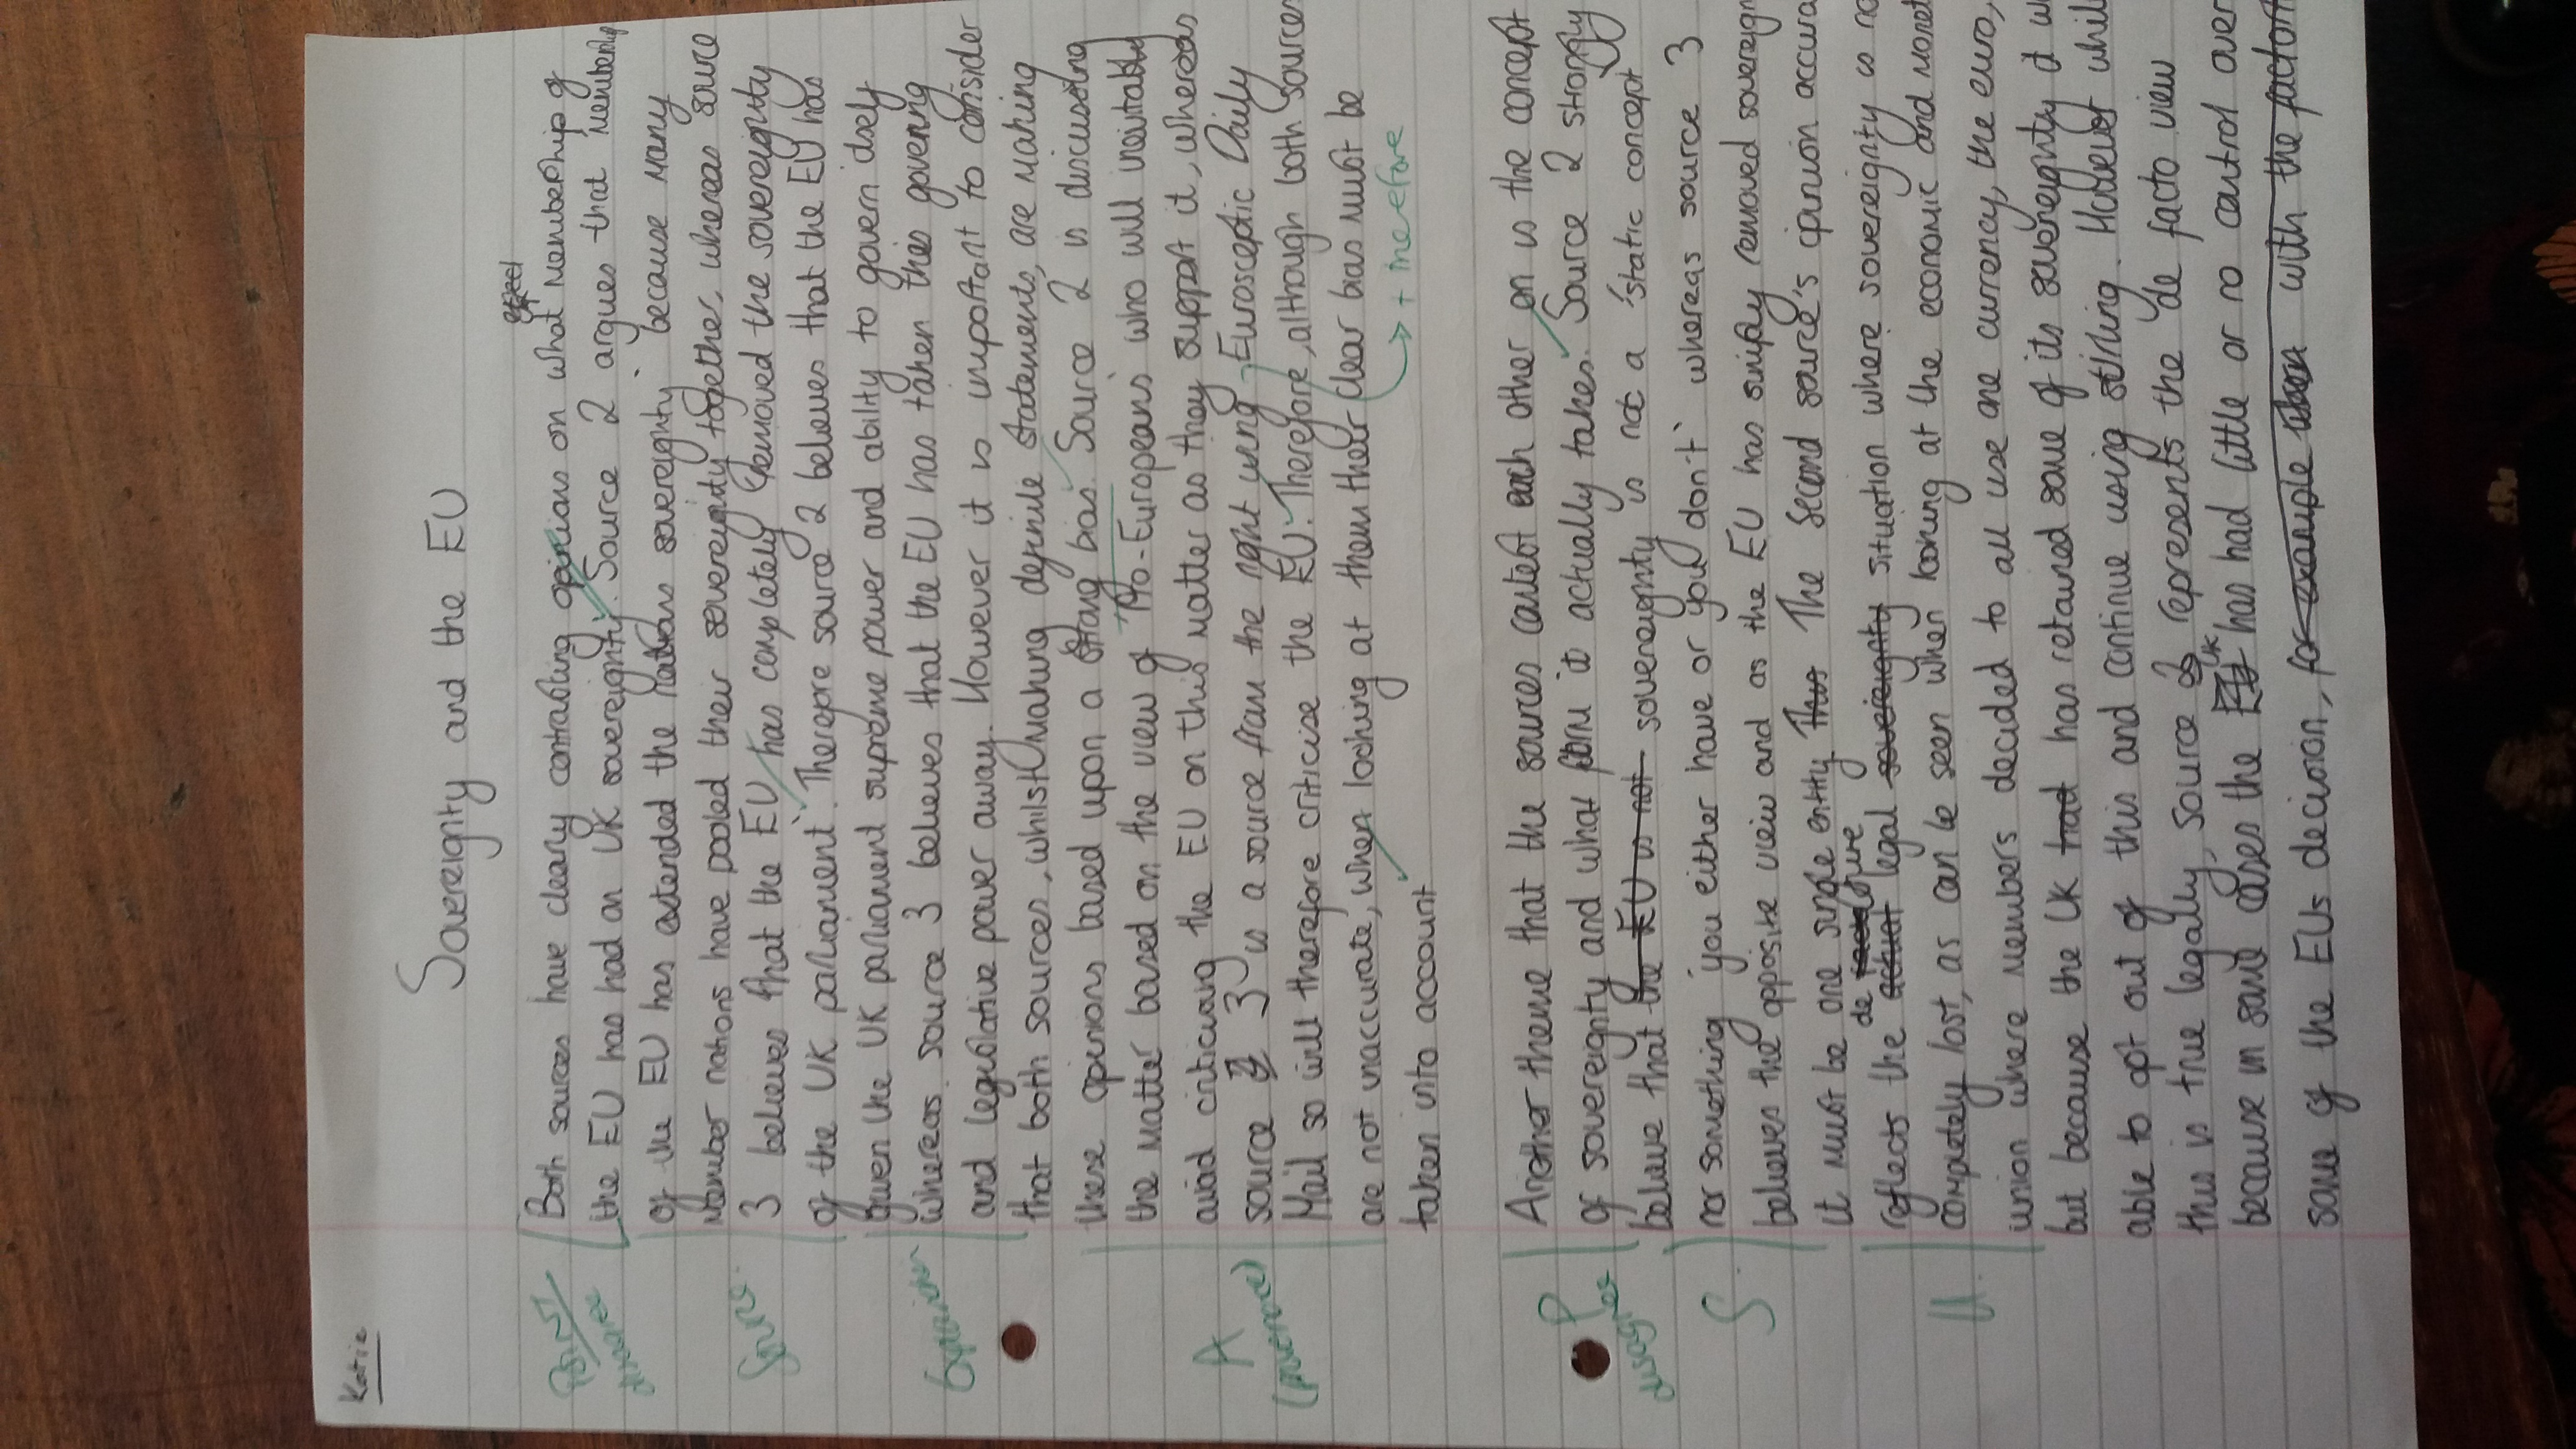 Katie
Sovereignty and the EU
effect
Both sources have clearly contrasting opinions on what membership of
the EU has had on UK sovereignty. Source 2 argues that 'membership
of the EU has extended the nations sovereignty' because many
member nations have pooled their sovereignty together, whereas source
3 believes that the EU 'has completely removed the sovereignty
of the UK parliament'. Therefore source 2 believes that the EU has
given the UK parliament supreme power and ability to govern itself
whereas source 3 believes that the EU has taken this governing
and legislative power away. However it is important to consider
that both sources, whilst making definite statements, are making
these opinions based upon a strong bias. Source 2 is discussing
the matter based on the view of 'Pro-Europeans' who will inevitably
avoid criticising the EU on this matter as they support it, whereas
source 3 is a source from the right wing, Eurosceptic Daily
Mail so will therefore criticise the EU. Therefore, although both sources
are not inaccurate, when looking at them their clear bias must be
taken into account
→ + therefore
Another theme that the sources contest each other on is the concept
of sovereignty and what form it actually takes. Source 2 strongly
believe that the EU is not sovereignty is not a 'static concept
nor something you either have or you don't' whereas source 3
believes the opposite view and as the EU has simply removed sovereign
it must be one single entity. This The second source's opinion accura
de jure
reflects the actual legal sovereignty situation where sovereignty is no
completely lost, as can be seen when looking at the economic and monet
union where members decided to all use one currency, the euro,
but because the UK had has retained some of its sovereignty it w
able to opt out of this and continue using stirling. However whil
this is true legally, source 3 represents the 'de facto' view
UK
because in some cases the EU has had little or no control over
some of the EUs decision, for example when with the factor
Point/
Source
Explanation
A
(provenance)
P
disagree
S
U